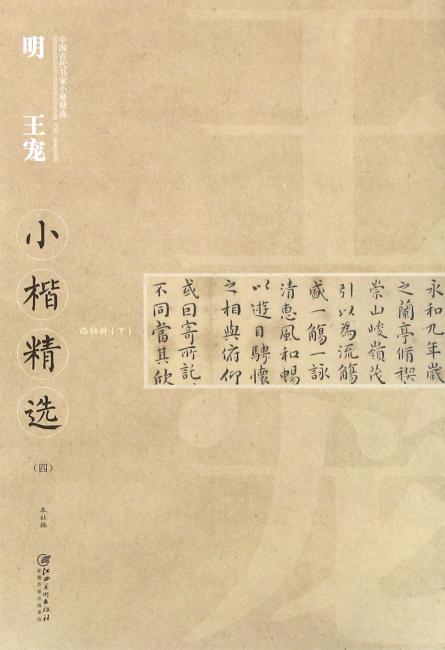 中国古代书家小楷精选
明 王宠
小楷精选
临帖册（下）
（四）
本社编
江西美术出版社
全国百佳出版单位
永和九年歲
之蘭亭脩稧
崇山峻嶺茂
引以為流觴
盛一觴一詠
清惠風和暢
以遊目騁懷
之相與俯仰
或因寄所託
不同當其欣